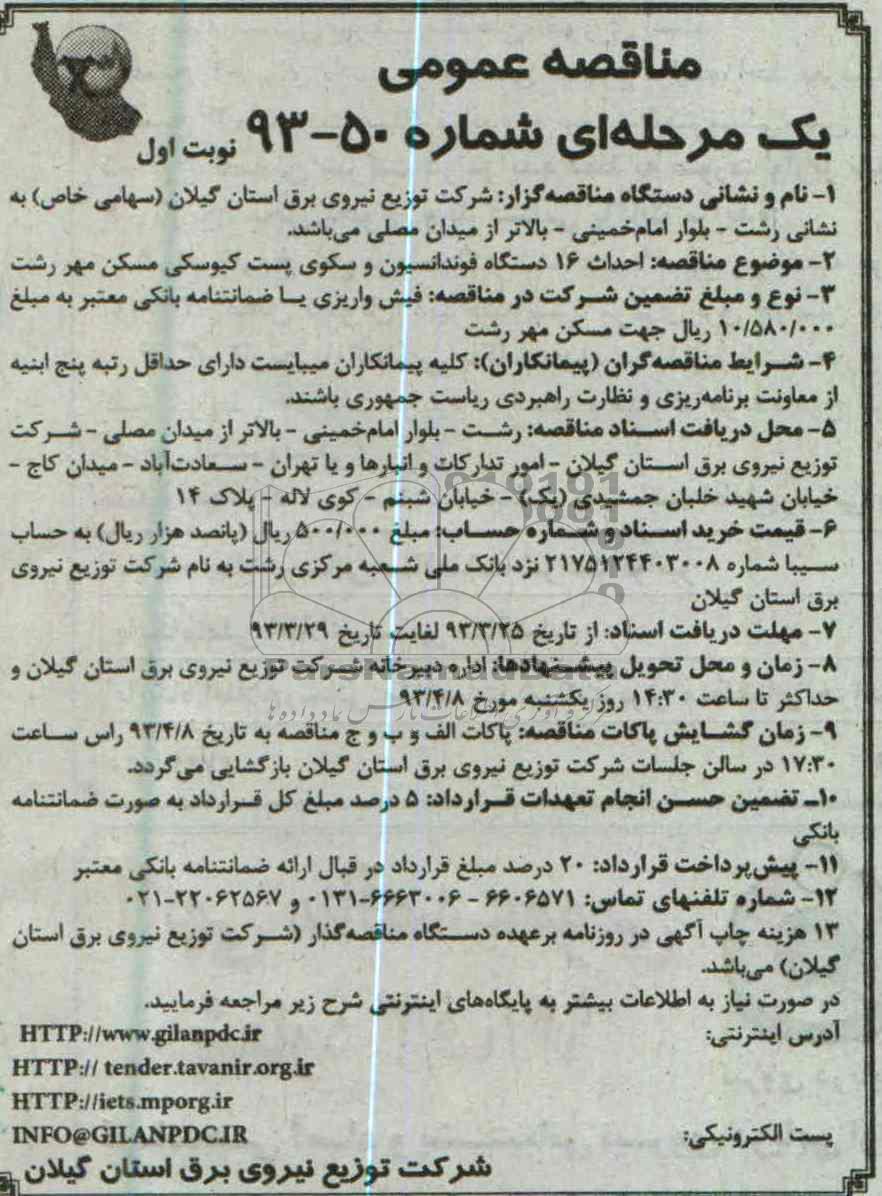 مناقصه عمومی
یک مرحله‌ای شماره ۵۰-۹۳ نوبت اول
۱- نام و نشانی دستگاه مناقصه‌گزار: شرکت توزیع نیروی برق استان گیلان (سهامی خاص) به
نشانی رشت - بلوار امام‌خمینی - بالاتر از میدان مصلی می‌باشد.
۲- موضوع مناقصه: احداث ۱۶ دستگاه فوندانسیون و سکوی پست کیوسکی مسکن مهر رشت
۳- نوع و مبلغ تضمین شرکت در مناقصه: فیش واریزی یا ضمانتنامه بانکی معتبر به مبلغ
۱۰/۵۸۰/۰۰۰ ریال جهت مسکن مهر رشت
۴- شرایط مناقصه‌گران (پیمانکاران): کلیه پیمانکاران میبایست دارای حداقل رتبه پنج ابنیه
از معاونت برنامه‌ریزی و نظارت راهبردی ریاست جمهوری باشند.
۵- محل دریافت اسناد مناقصه: رشت - بلوار امام‌خمینی - بالاتر از میدان مصلی - شرکت
توزیع نیروی برق استان گیلان - امور تدارکات و انبارها و یا تهران - سعادت‌آباد - میدان کاج -
خیابان شهید خلبان جمشیدی (یک) - خیابان شبنم - کوی لاله - پلاک ۱۴
۶- قیمت خرید اسناد و شماره حساب: مبلغ ۵۰۰/۰۰۰ ریال (پانصد هزار ریال) به حساب
سیبا شماره ۲۱۷۵۱۲۴۴۰۳۰۰۸ نزد بانک ملی شعبه مرکزی رشت به نام شرکت توزیع نیروی
برق استان گیلان
۷- مهلت دریافت اسناد: از تاریخ ۹۳/۳/۲۵ لغایت تاریخ ۹۳/۳/۲۹
۸- زمان و محل تحویل پیشنهادها: اداره دبیرخانه شرکت توزیع نیروی برق استان گیلان و
حداکثر تا ساعت ۱۴:۳۰ روز یکشنبه مورخ ۹۳/۴/۸
۹- زمان گشایش پاکات مناقصه: پاکات الف و ب و ج مناقصه به تاریخ ۹۳/۴/۸ راس ساعت
۱۷:۳۰ در سالن جلسات شرکت توزیع نیروی برق استان گیلان بازگشایی می‌گردد.
۱۰- تضمین حسن انجام تعهدات قرارداد: ۵ درصد مبلغ کل قرارداد به صورت ضمانتنامه
بانکی
۱۱- پیش‌پرداخت قرارداد: ۲۰ درصد مبلغ قرارداد در قبال ارائه ضمانتنامه بانکی معتبر
۱۲- شماره تلفنهای تماس: ۶۶۰۶۵۷۱ - ۶۶۶۳۰۰۶-۰۱۳۱ و ۲۲۰۶۲۵۶۷-۰۲۱
۱۳ هزینه چاپ آگهی در روزنامه برعهده دستگاه مناقصه‌گذار (شرکت توزیع نیروی برق استان
گیلان) می‌باشد.
در صورت نیاز به اطلاعات بیشتر به پایگاه‌های اینترنتی شرح زیر مراجعه فرمایید.
آدرس اینترنتی: HTTP://www.gilanpdc.ir
HTTP:// tender.tavanir.org.ir
HTTP://iets.mporg.ir
پست الکترونیکی: INFO@GILANPDC.IR
شرکت توزیع نیروی برق استان گیلان